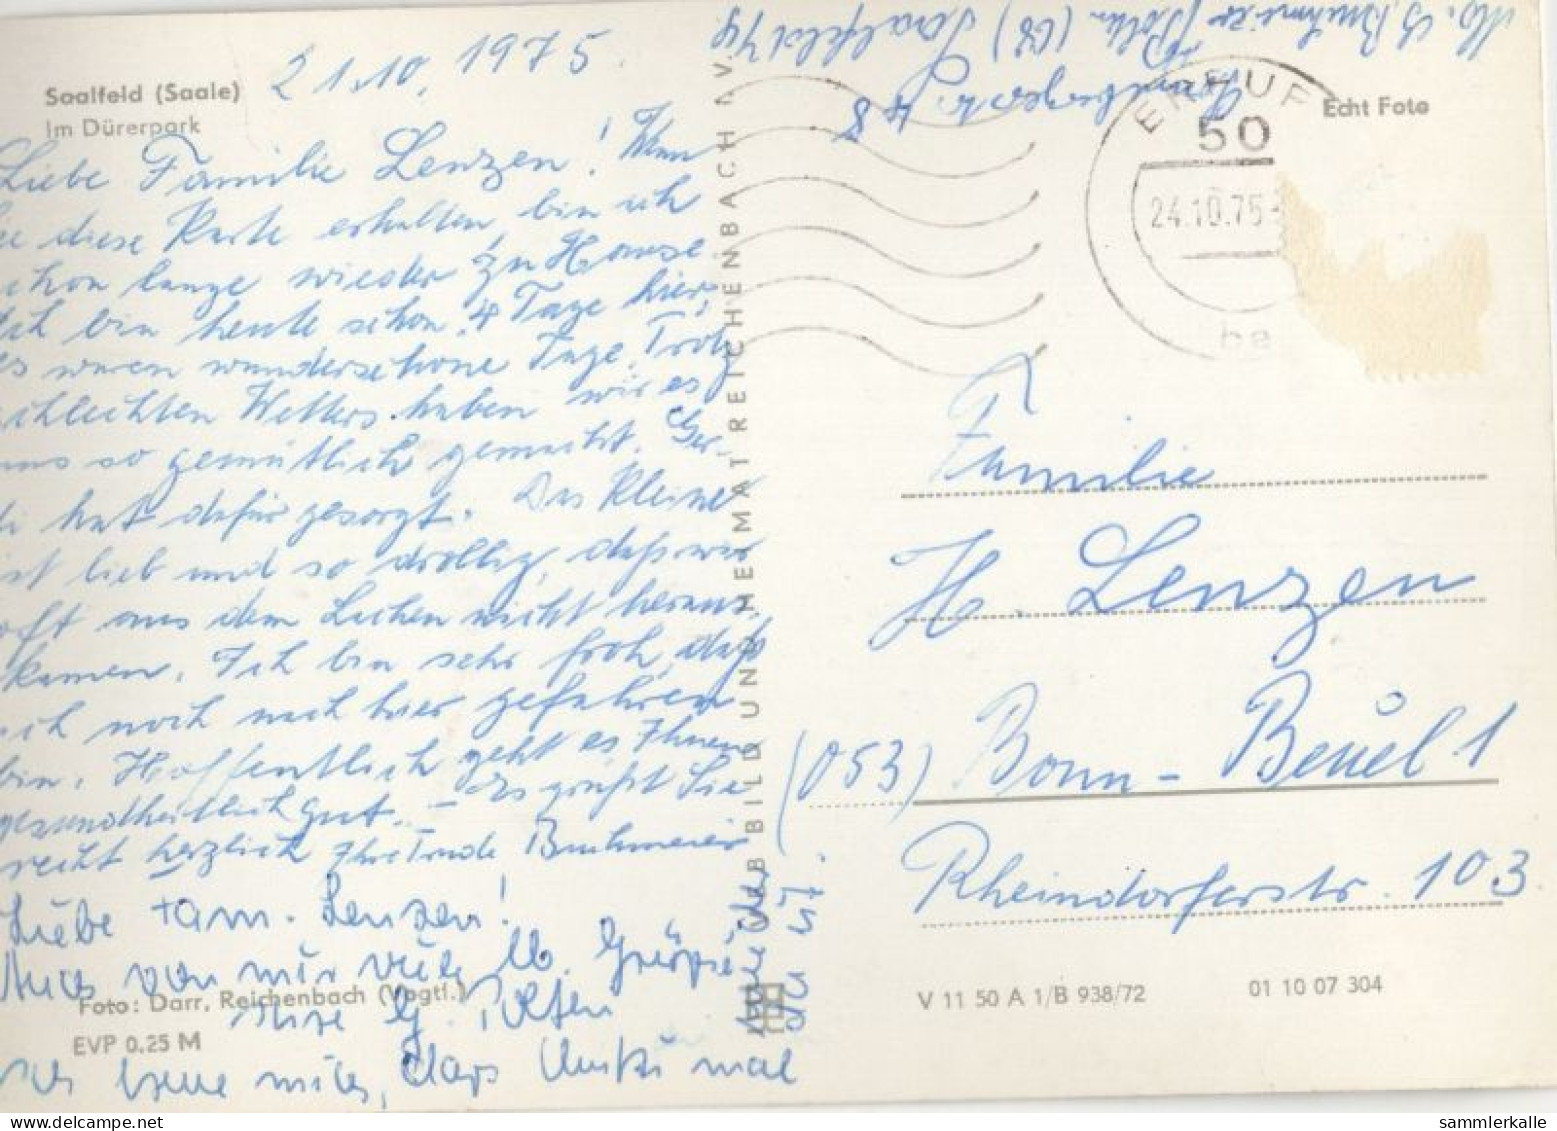 Saalfeld (Saale)
Im Dürerpark
21.10.1975.
Liebe Familie Lenzen! Wenn
Sie diese Karte erhalten, bin ich
schon lange wieder zu Hause.
Ich bin heute schon 4 Tage hier,
es waren wunderschöne Tage. Trotz
schlechten Wetters haben wir es
uns so gemütlich gemacht. Ger-
di hat dafür gesorgt. Das Kleine
ist lieb und so drollig, daß wir
oft aus dem Lachen nicht heraus-
kamen. Ich bin sehr froh, daß
ich noch nach hier gefahren
bin. Hoffentlich geht es Ihnen
gesundheitlich gut. – Es grüßt Sie
recht herzlich Ihre Trude Buchmeier
Liebe Fam. Lenzen!
Auch von mir viele lb. Grüße
Ihre G.
Ich freue mich, dass Mutti mal
wieder
ist.
Foto: Darr, Reichenbach (Vogtl.)
EVP 0,25 M
BILD UND HEIMAT REICHENBACH I. V.
Buchmeier
Saalfeld
48
ERFUR
50
24.10.75
Echt Foto
Familie
H. Lenzen
(053) Bonn – Beuel 1
Rheindorferstr. 103
V 11 50 A 1/B 938/72
01 10 07 304
sammlerkalle